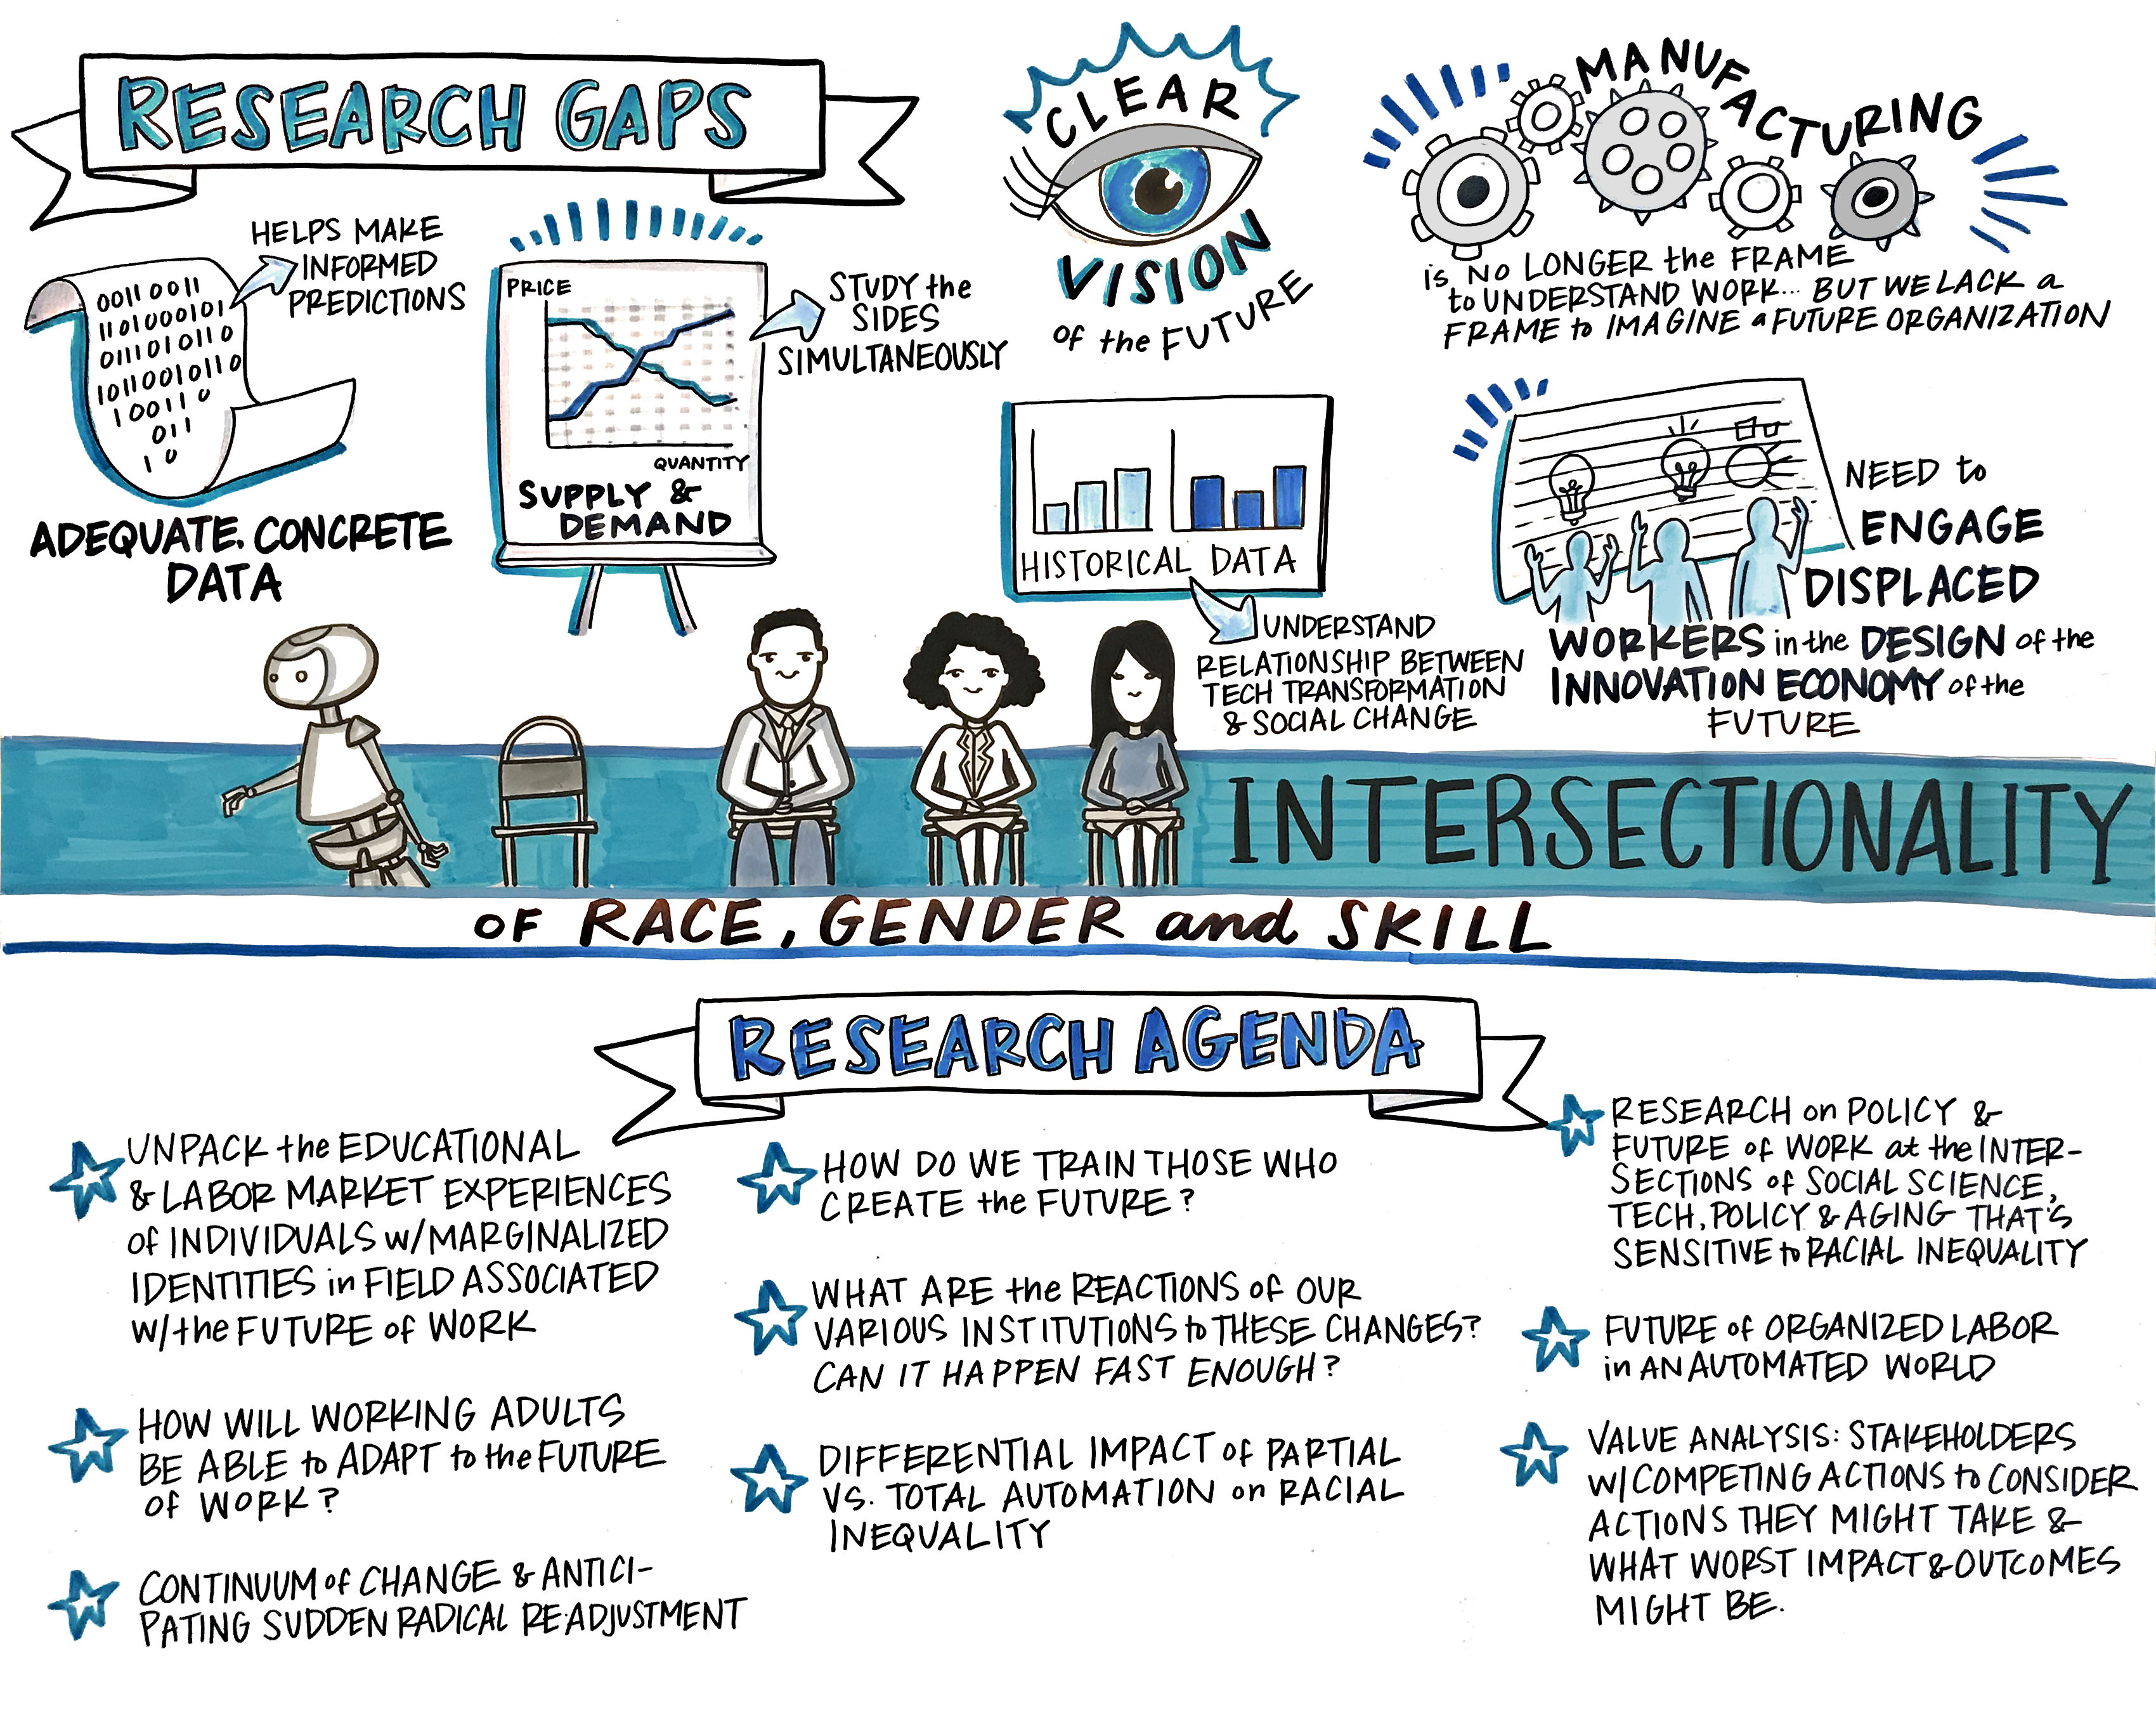 RESEARCH GAPS
HELPS MAKE
INFORMED
PREDICTIONS
0011 0011
1101000101
0111010110
10110010110
10011 0
011
1 0
ADEQUATE, CONCRETE
DATA
PRICE
QUANTITY
SUPPLY &
DEMAND
STUDY the
SIDES
SIMULTANEOUSLY
CLEAR
VISION
of the FUTURE
MANUFACTURING
is NO LONGER the FRAME
to UNDERSTAND WORK... BUT WE LACK a
FRAME to IMAGINE a FUTURE ORGANIZATION
HISTORICAL DATA
UNDERSTAND
RELATIONSHIP BETWEEN
TECH TRANSFORMATION
& SOCIAL CHANGE
NEED to
ENGAGE
DISPLACED
WORKERS in the DESIGN of the
INNOVATION ECONOMY of the
FUTURE
INTERSECTIONALITY
OF RACE, GENDER and SKILL
RESEARCH AGENDA
UNPACK the EDUCATIONAL
& LABOR MARKET EXPERIENCES
of INDIVIDUALS w/MARGINALIZED
IDENTITIES in FIELD ASSOCIATED
w/the FUTURE of WORK
HOW WILL WORKING ADULTS
BE ABLE to ADAPT to the FUTURE
of WORK?
CONTINUUM of CHANGE & ANTICI-
PATING SUDDEN RADICAL RE-ADJUSTMENT
HOW DO WE TRAIN THOSE WHO
CREATE the FUTURE?
WHAT ARE the REACTIONS of OUR
VARIOUS INSTITUTIONS to THESE CHANGES?
CAN IT HAPPEN FAST ENOUGH?
DIFFERENTIAL IMPACT of PARTIAL
VS. TOTAL AUTOMATION on RACIAL
INEQUALITY
RESEARCH on POLICY &
FUTURE of WORK at the INTER-
SECTIONS of SOCIAL SCIENCE,
TECH, POLICY & AGING THAT'S
SENSITIVE to RACIAL INEQUALITY
FUTURE of ORGANIZED LABOR
in AN AUTOMATED WORLD
VALUE ANALYSIS: STAKEHOLDERS
W/COMPETING ACTIONS to CONSIDER
ACTIONS THEY MIGHT TAKE &
WHAT WORST IMPACT & OUTCOMES
MIGHT BE.